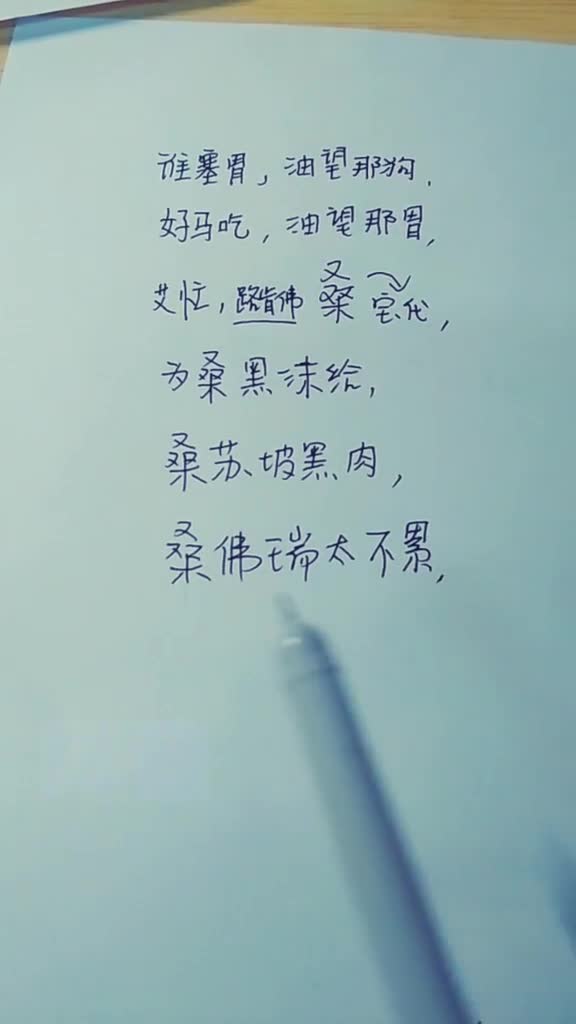 谁塞胃，油望那狗，
好马吃，油望那胃，
艾忙，路肯伟桑宝代，
为桑黑沫给，
桑苏坡黑肉，
桑伟瑞太不累，